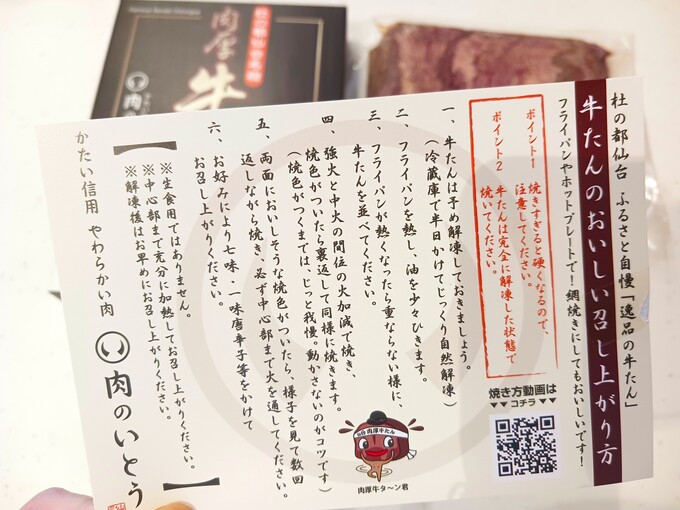 杜の都仙台
肉厚牛
肉
杜の都仙台 ふるさと自慢「逸品の牛たん」
牛たんのおいしい召し上がり方
フライパンやホットプレートで!網焼きにしてもおいしいです!
ポイント1
焼きすぎると硬くなるので、
注意してください。
ポイント2
牛たんは完全に解凍した状態で
焼いてください。
焼き方動画は
▼▼コチラ▼▼
一、牛たんは予め解凍しておきましょう。
(冷蔵庫で半日かけてじっくり自然解凍)
二、フライパンを熱し、油を少々ひきます。
三、フライパンが熱くなったら重ならない様に、
牛たんを並べてください。
四、強火と中火の間位の火加減で焼き、
焼色がついたら裏返して同様に焼きます。
(焼色がつくまでは、じっと我慢。動かさないのがコツです)
五、両面においしそうな焼色がついたら、様子を見て数回
返しながら焼き、必ず中心部まで火を通してください。
六、お好みにより七味・一味唐辛子等をかけて
お召し上がりください。
肉厚牛たん
肉厚牛タ〜ン君
※生食用ではありません。
※中心部まで充分に加熱してお召し上がりください。
※解凍後はお早めにお召し上がりください。
かたい信用 やわらかい肉
い 肉のいとう